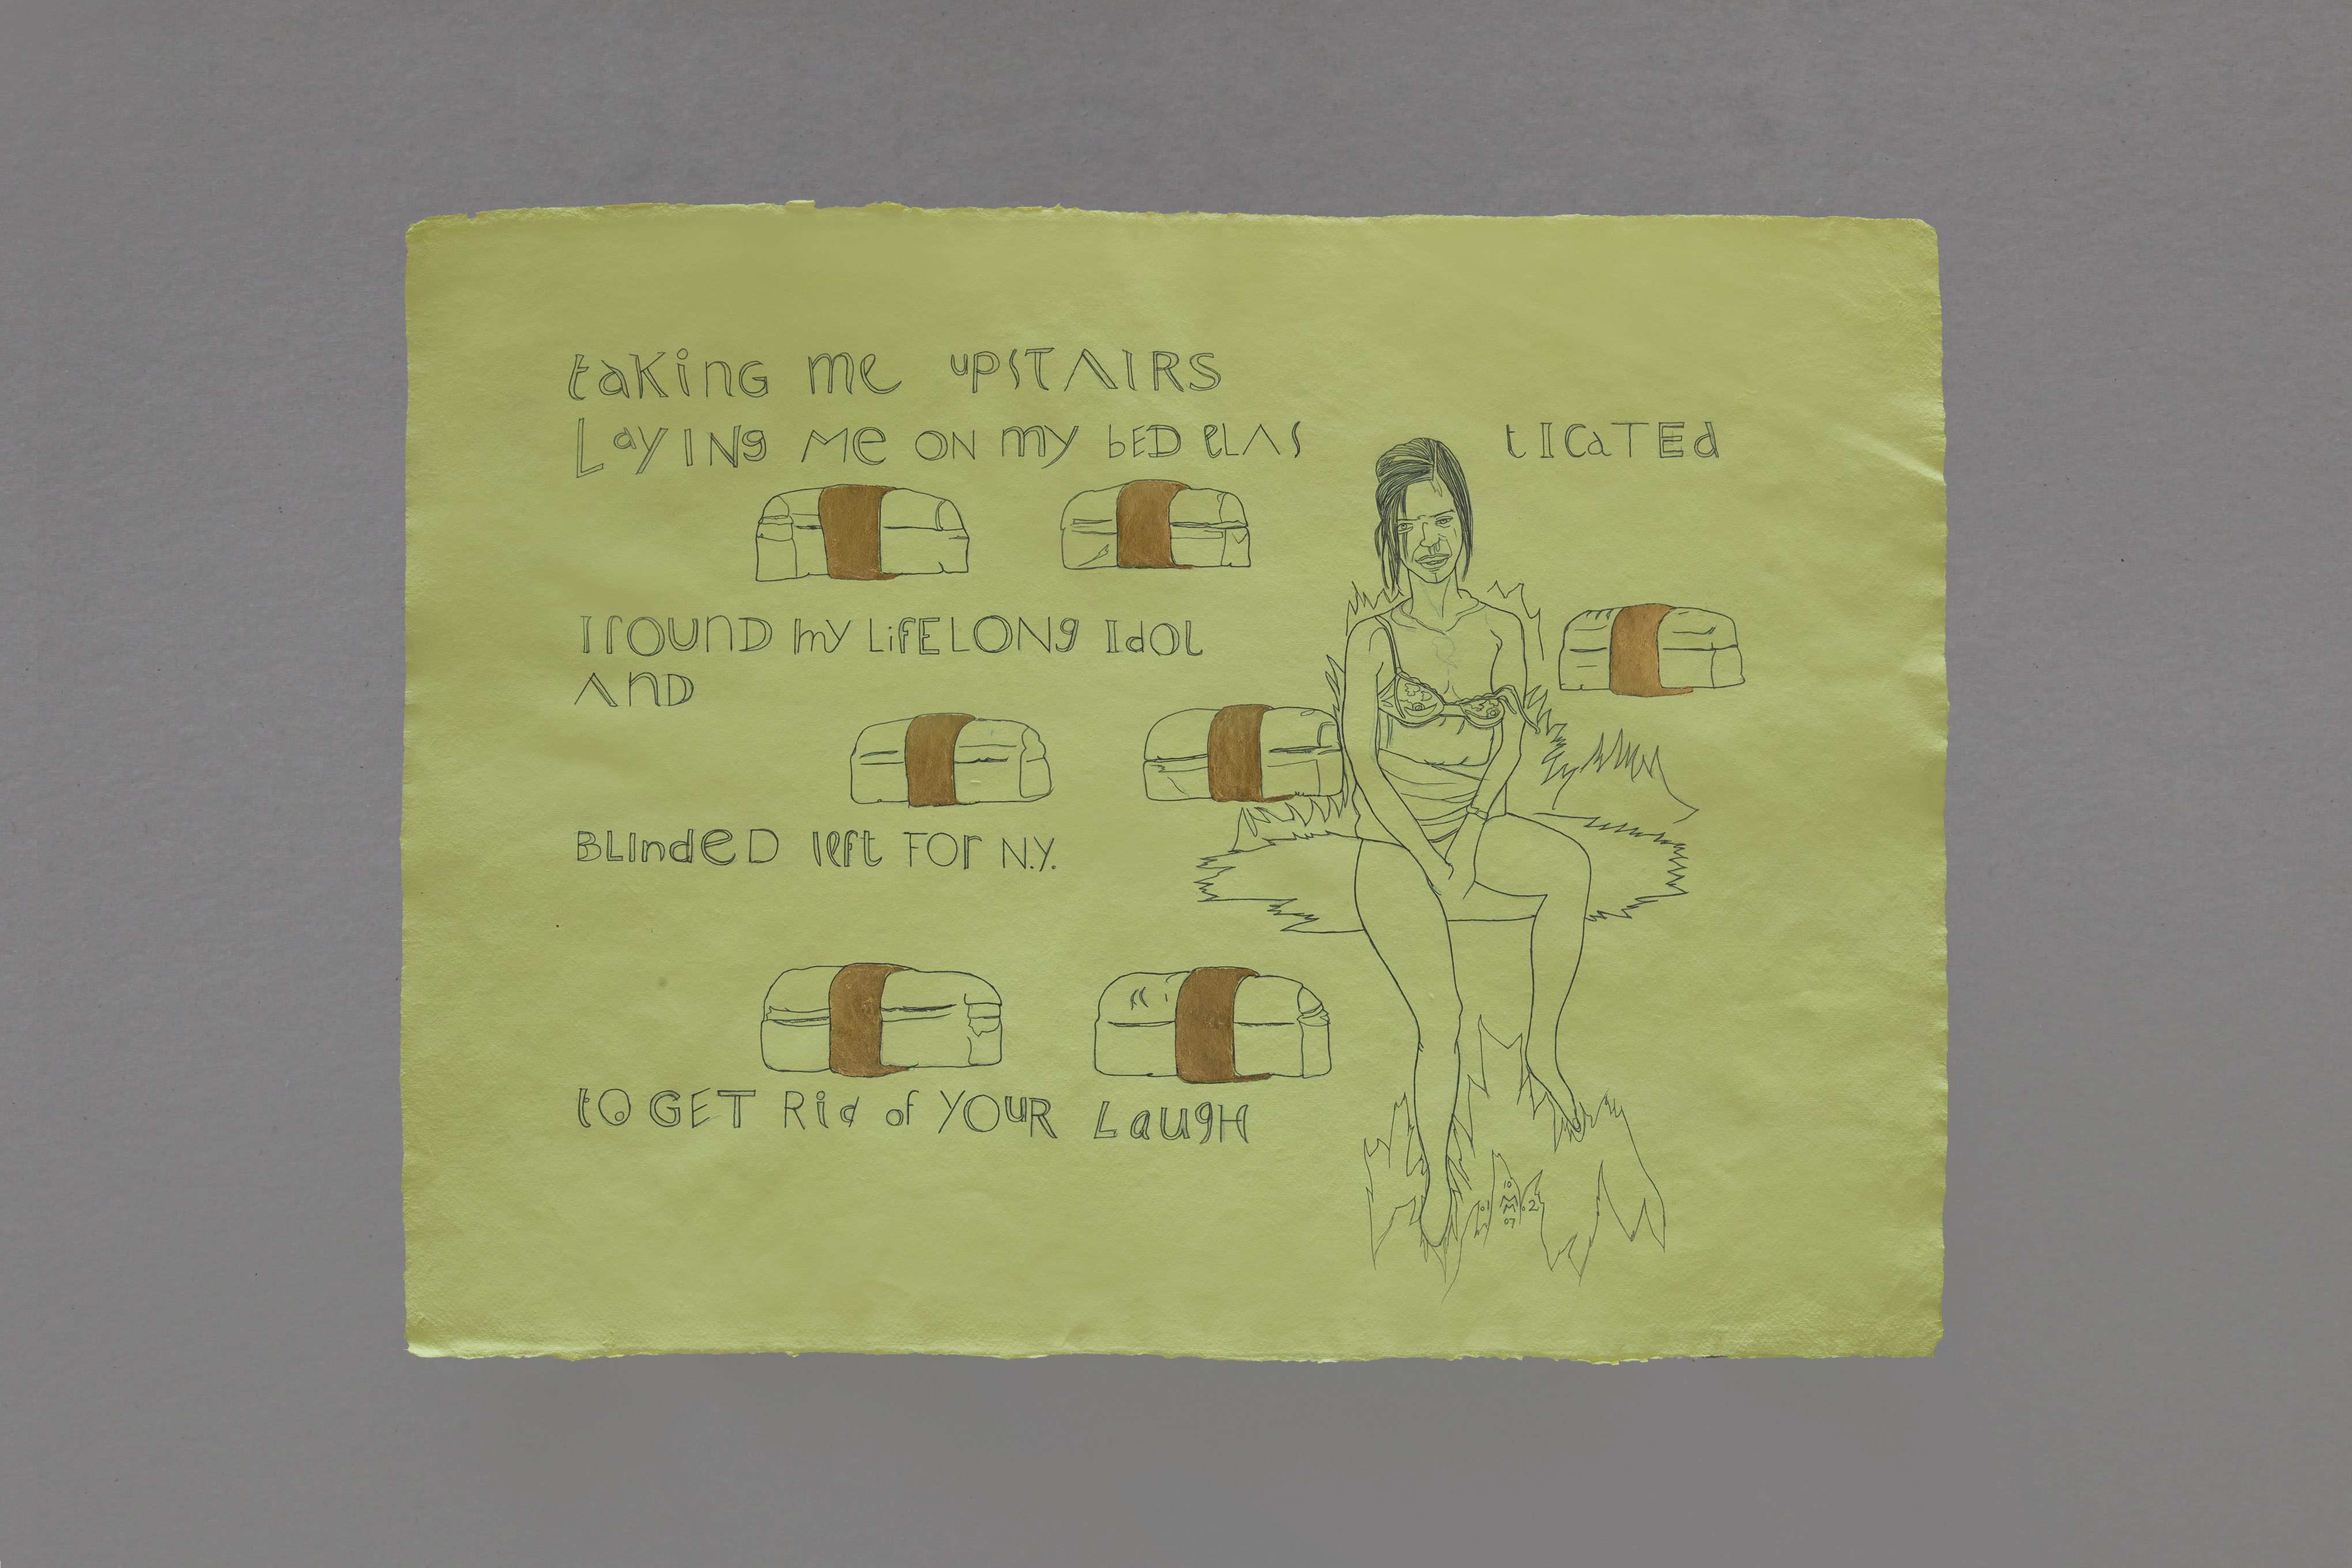 taKinG me upSTAIRS
LayINg Me ON my bED elAS tICaTEd
I fOUnD my LifELONg IdOL
AnD
BLIndeD left FOr N.Y.
tO GET Rid of YOuR LaugH
10
01 M .2
07